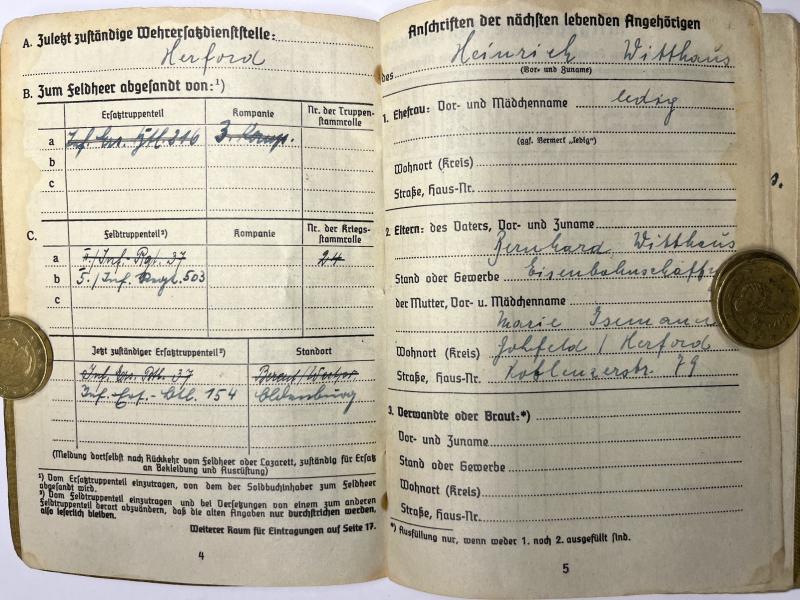 A. Zuletzt zuständige Wehrersatzdienststelle:
Herford
B. Zum Feldheer abgesandt von:¹)
Ersatztruppenteil Kompanie Nr. der Truppen-
stammrolle
a Inf. Ers. Btl. 216 3. Komp.
b
c
C. Feldtruppenteil²) Kompanie Nr. der Kriegs-
stammrolle
a 5./Inf. Rgt. 37 24
b 5./Inf. Rgt. 503
c
Jetzt zuständiger Ersatztruppenteil²) Standort
Inf. Ers. Btl. 37
Inf.-Ers.-Btl. 154 Oldenburg
(Meldung dortselbst nach Rückkehr vom Feldheer oder Lazarett, zuständig für Ersatz
an Bekleidung und Ausrüstung)
¹) Vom Ersatztruppenteil einzutragen, von dem der Soldbuchinhaber zum Feldheer
abgesandt wird.
²) Vom Feldtruppenteil einzutragen und bei Versetzungen von einem zum anderen
Feldtruppenteil derart abzuändern, daß die alten Angaben nur durchstrichen werden,
also leserlich bleiben.
Weiterer Raum für Eintragungen auf Seite 17.
4
Anschriften der nächsten lebenden Angehörigen
des Heinrich Witthaus
(Vor- und Zuname)
1. Ehefrau: Vor- und Mädchenname ledig
(ggf. Vermerk „ledig")
Wohnort (Kreis)
Straße, Haus-Nr.
2. Eltern: des Vaters, Vor- und Zuname
Bernhard Witthaus
Stand oder Gewerbe Eisenbahnschaffn
der Mutter, Vor- u. Mädchenname
Marie Isemann
Wohnort (Kreis) Gohfeld / Herford
Straße, Haus-Nr. Koblenzerstr. 79
3. Verwandte oder Braut:*)
Vor- und Zuname
Stand oder Gewerbe
Wohnort (Kreis)
Straße, Haus-Nr.
*) Ausfüllung nur, wenn weder 1. noch 2. ausgefüllt sind.
5